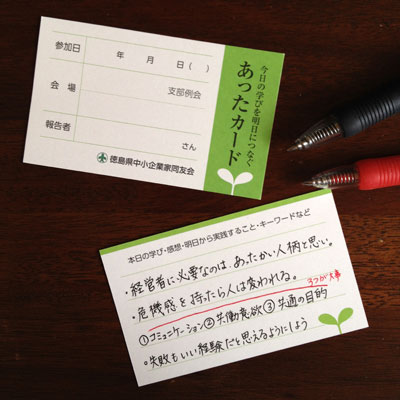 参加日 年 月 日( )
会場 支部例会
報告者 さん
徳島県中小企業家同友会
今日の学びを明日につなぐ
あったカード
本日の学び・感想・明日から実践すること・キーワードなど
・経営者に必要なのは、あったかい人柄と思い。
・危機感を持ったら人は変われる。
3つが大事
①コミュニケーション②共働意欲③共通の目的
・失敗もいい経験だと思えるようにしよう